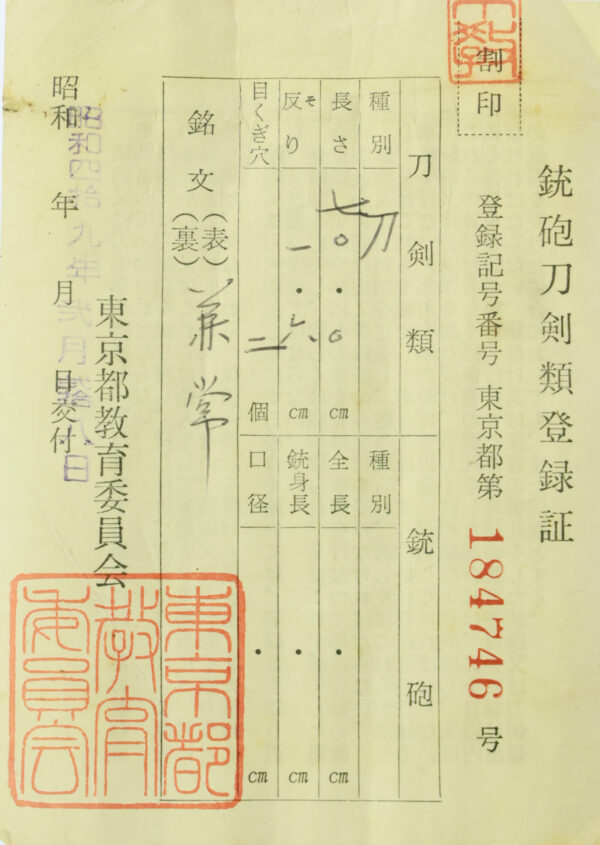 銃砲刀剣類登録証
割印
登録記号番号 東京都第184746号
刀剣類
種別 刀
長さ 七〇・〇 cm
反り 一・六 cm
そ
目くぎ穴 二 個
銘文 (表) 兼常
(裏)
銃砲
種別
全長 ・ cm
銃身長 ・ cm
口径 ・ cm
東京都教育委員会
昭和 年 月 日交付
昭和四拾九年弐月拾八日
東京都
教育
委員会